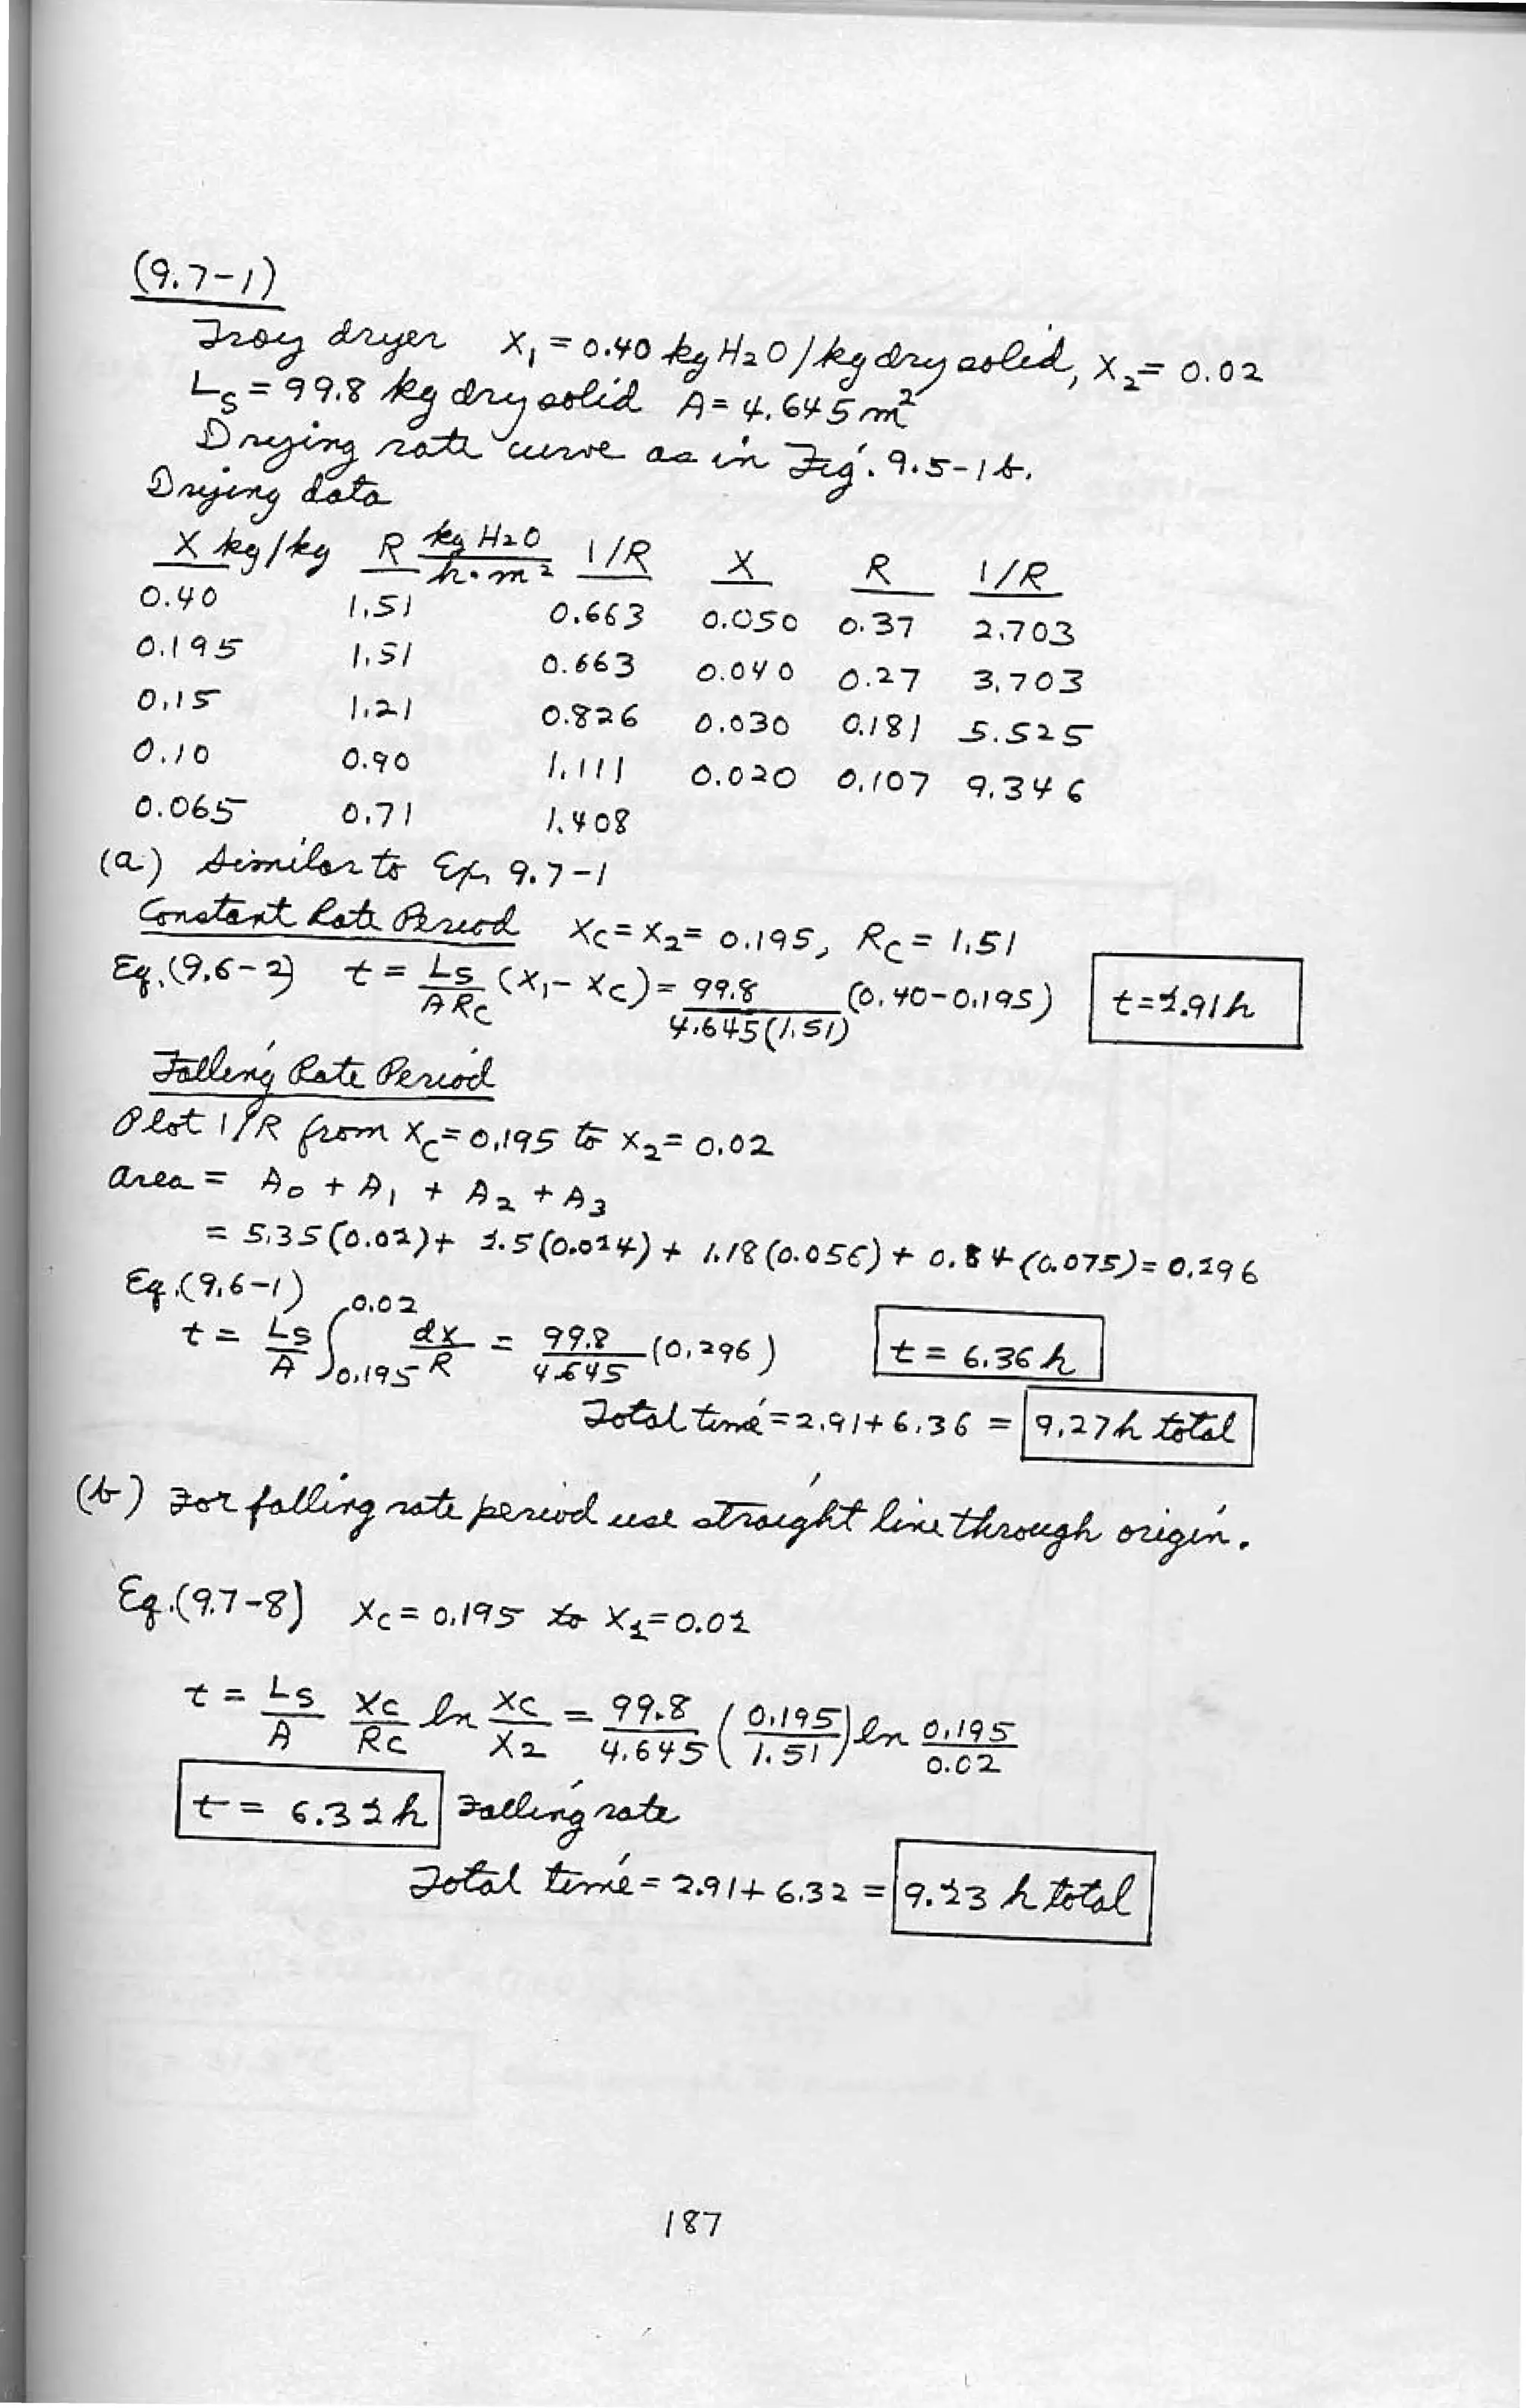 (9.7-1)
Tray dryer X₁ = 0.40 kg H₂O / kg dry solid, X₂ = 0.02
L_S = 99.8 kg dry solid A = 4.645 m²
Drying rate curve as in Fig. 9.5-1b.
Drying data
X kg/kg R kg H₂O/h·m² 1/R X R 1/R
0.40 1.51 0.663 0.050 0.37 2.703
0.195 1.51 0.663 0.040 0.27 3.703
0.15 1.21 0.826 0.030 0.181 5.525
0.10 0.90 1.111 0.020 0.107 9.346
0.065 0.71 1.408
(a) Similar to Ex. 9.7-1
Constant Rate Period X_C = X₂ = 0.195, R_C = 1.51
Eq. (9.6-2) t = L_S/(A R_C) (X₁ - X_C) = 99.8/(4.645(1.51)) (0.40-0.195) t = 2.91 h
Falling Rate Period
Plot 1/R from X_C = 0.195 to X₂ = 0.02
Area = A₀ + A₁ + A₂ + A₃
= 5.35(0.02) + 2.5(0.024) + 1.18(0.056) + 0.84(0.075) = 0.296
Eq. (9.6-1)
t = L_S/A ∫_0.195^0.02 dX/R = 99.8/4.645 (0.296) t = 6.36 h
Total time = 2.91 + 6.36 = 9.27 h total
(b) For falling rate period use straight line through origin.
Eq. (9.7-8) X_C = 0.195 to X₂ = 0.02
t = L_S/A X_C/R_C ln X_C/X₂ = 99.8/4.645 (0.195/1.51) ln 0.195/0.02
t = 6.32 h Falling rate
Total time = 2.91 + 6.32 = 9.23 h total
187